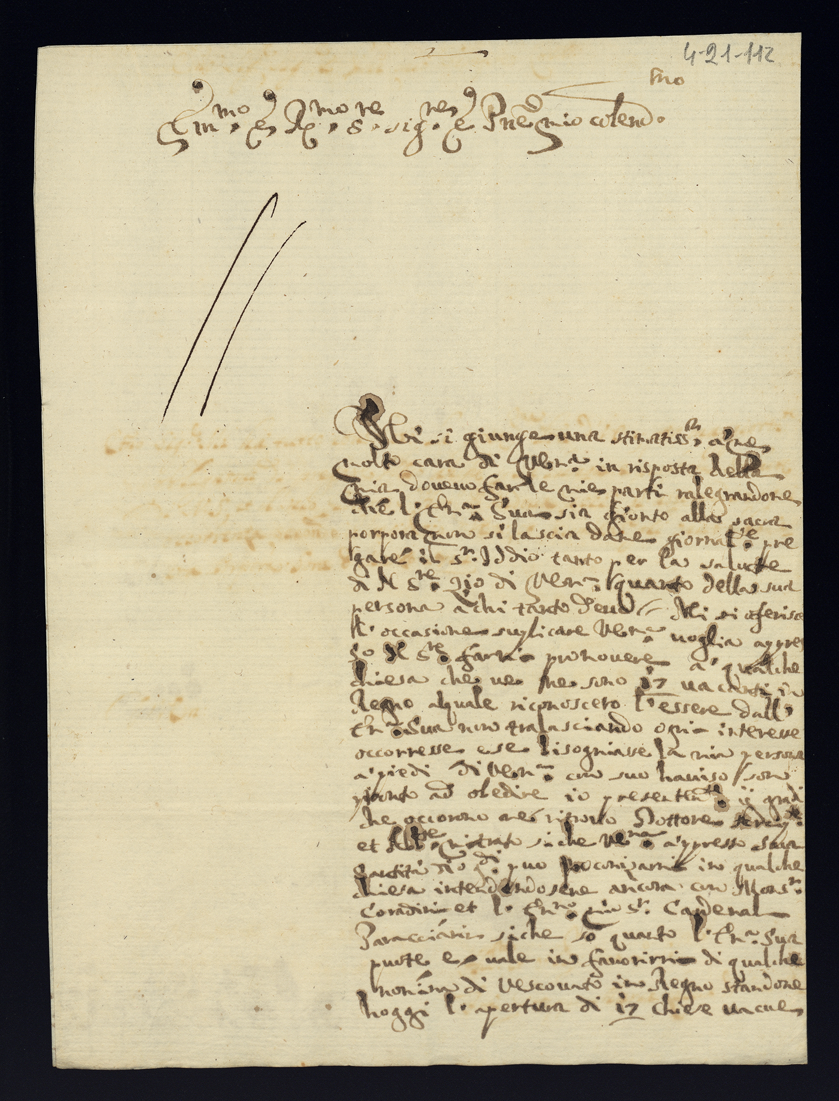 4-21-112
Em.mo e R.mo S.re Sig.re e Pne mio colend.mo
Mi si giunge una stimatiss.a a me
molto cara di Vem.a in risposta della
mia dovevo far le mie parti ralegrandone
che l'Em.a Sua sia gionto alla sacra
porpora non si lascia dame giornal.te pre
gare il S.r Iddio tanto per la salute
di N S.re Zio di Vem.a quanto della sua
persona à chi tanto devo Mi si oferisce
l'occasione suplicare Vem.a voglia appres
so N S.re farmi promovere à qualche
chiesa che ve ne sono 17 vacanti in
Regno alquale riconoscerò l'essere dall'
Em.a Sua non tralasciando ogni interesse
occorresse e se bisogniasse la mia persona
a piedi di Vem.a con suo haviso son
pronto ad obedire io presentem.te gradi
che occorono mè ritrovo Dottore
et Abb.te mitrato siche Vem.a appresso Sua
Santità può in qualche
chiesa intendendosene ancora con Mons.r
Coradini et l'Em.mo mio S.r Cardenal
Paracciani siche sò quanto l'Em.a Sua
puote e vale in favorirmi di qualche
nomina di Vescovato in Regno standone
hoggi l'apertura di 17 chiese vacue